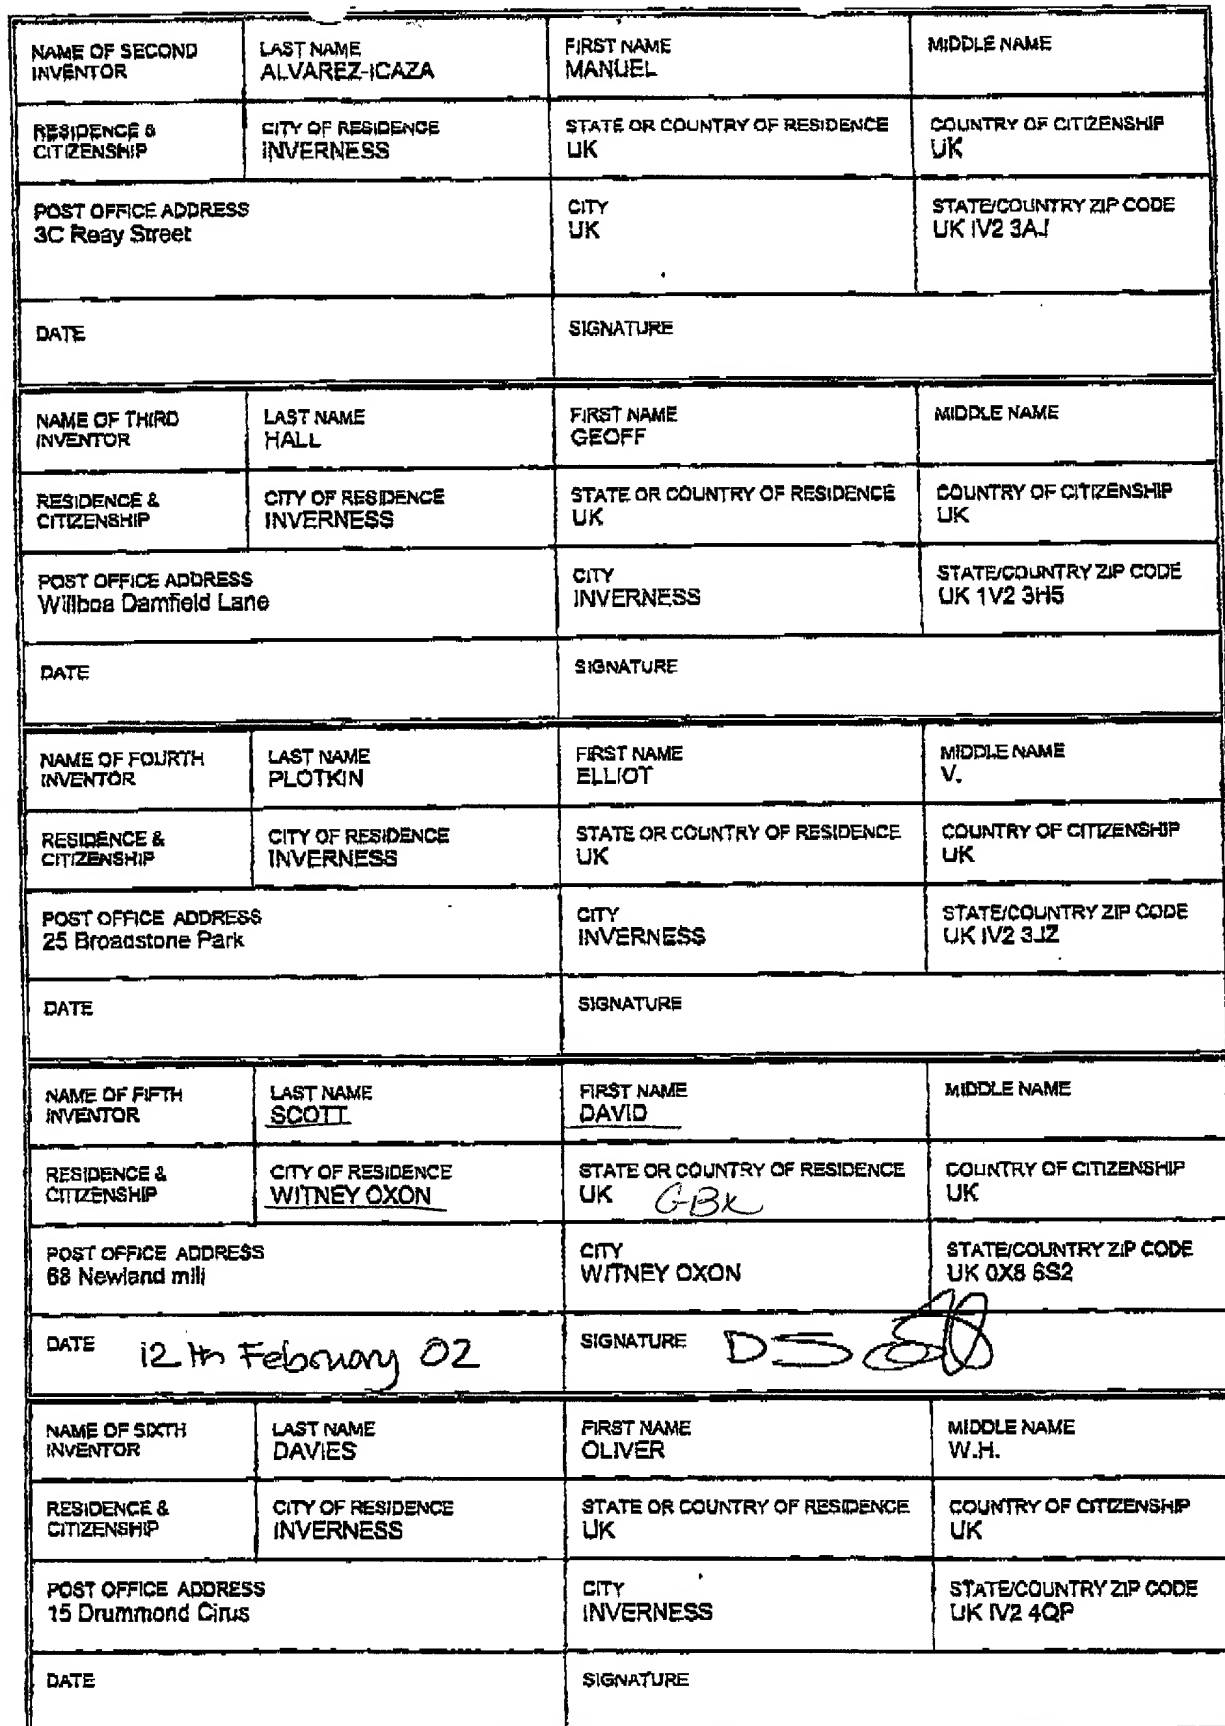 NAME OF SECOND INVENTOR
LAST NAME
ALVAREZ-ICAZA
FIRST NAME
MANUEL
MIDDLE NAME
RESIDENCE & CITIZENSHIP
CITY OF RESIDENCE
INVERNESS
STATE OR COUNTRY OF RESIDENCE
UK
COUNTRY OF CITIZENSHIP
UK
POST OFFICE ADDRESS
3C Reay Street
CITY
UK
STATE/COUNTRY ZIP CODE
UK IV2 3AJ
DATE
SIGNATURE
NAME OF THIRD INVENTOR
LAST NAME
HALL
FIRST NAME
GEOFF
MIDDLE NAME
RESIDENCE & CITIZENSHIP
CITY OF RESIDENCE
INVERNESS
STATE OR COUNTRY OF RESIDENCE
UK
COUNTRY OF CITIZENSHIP
UK
POST OFFICE ADDRESS
Willboa Damfield Lane
CITY
INVERNESS
STATE/COUNTRY ZIP CODE
UK 1V2 3H5
DATE
SIGNATURE
NAME OF FOURTH INVENTOR
LAST NAME
PLOTKIN
FIRST NAME
ELLIOT
MIDDLE NAME
V.
RESIDENCE & CITIZENSHIP
CITY OF RESIDENCE
INVERNESS
STATE OR COUNTRY OF RESIDENCE
UK
COUNTRY OF CITIZENSHIP
UK
POST OFFICE ADDRESS
25 Broadstone Park
CITY
INVERNESS
STATE/COUNTRY ZIP CODE
UK IV2 3JZ
DATE
SIGNATURE
NAME OF FIFTH INVENTOR
LAST NAME
SCOTT
FIRST NAME
DAVID
MIDDLE NAME
RESIDENCE & CITIZENSHIP
CITY OF RESIDENCE
WITNEY OXON
STATE OR COUNTRY OF RESIDENCE
UK GBX
COUNTRY OF CITIZENSHIP
UK
POST OFFICE ADDRESS
68 Newland mill
CITY
WITNEY OXON
STATE/COUNTRY ZIP CODE
UK 0X8 6S2
DATE 12th February 02
SIGNATURE
NAME OF SIXTH INVENTOR
LAST NAME
DAVIES
FIRST NAME
OLIVER
MIDDLE NAME
W.H.
RESIDENCE & CITIZENSHIP
CITY OF RESIDENCE
INVERNESS
STATE OR COUNTRY OF RESIDENCE
UK
COUNTRY OF CITIZENSHIP
UK
POST OFFICE ADDRESS
15 Drummond Cirus
CITY
INVERNESS
STATE/COUNTRY ZIP CODE
UK IV2 4QP
DATE
SIGNATURE